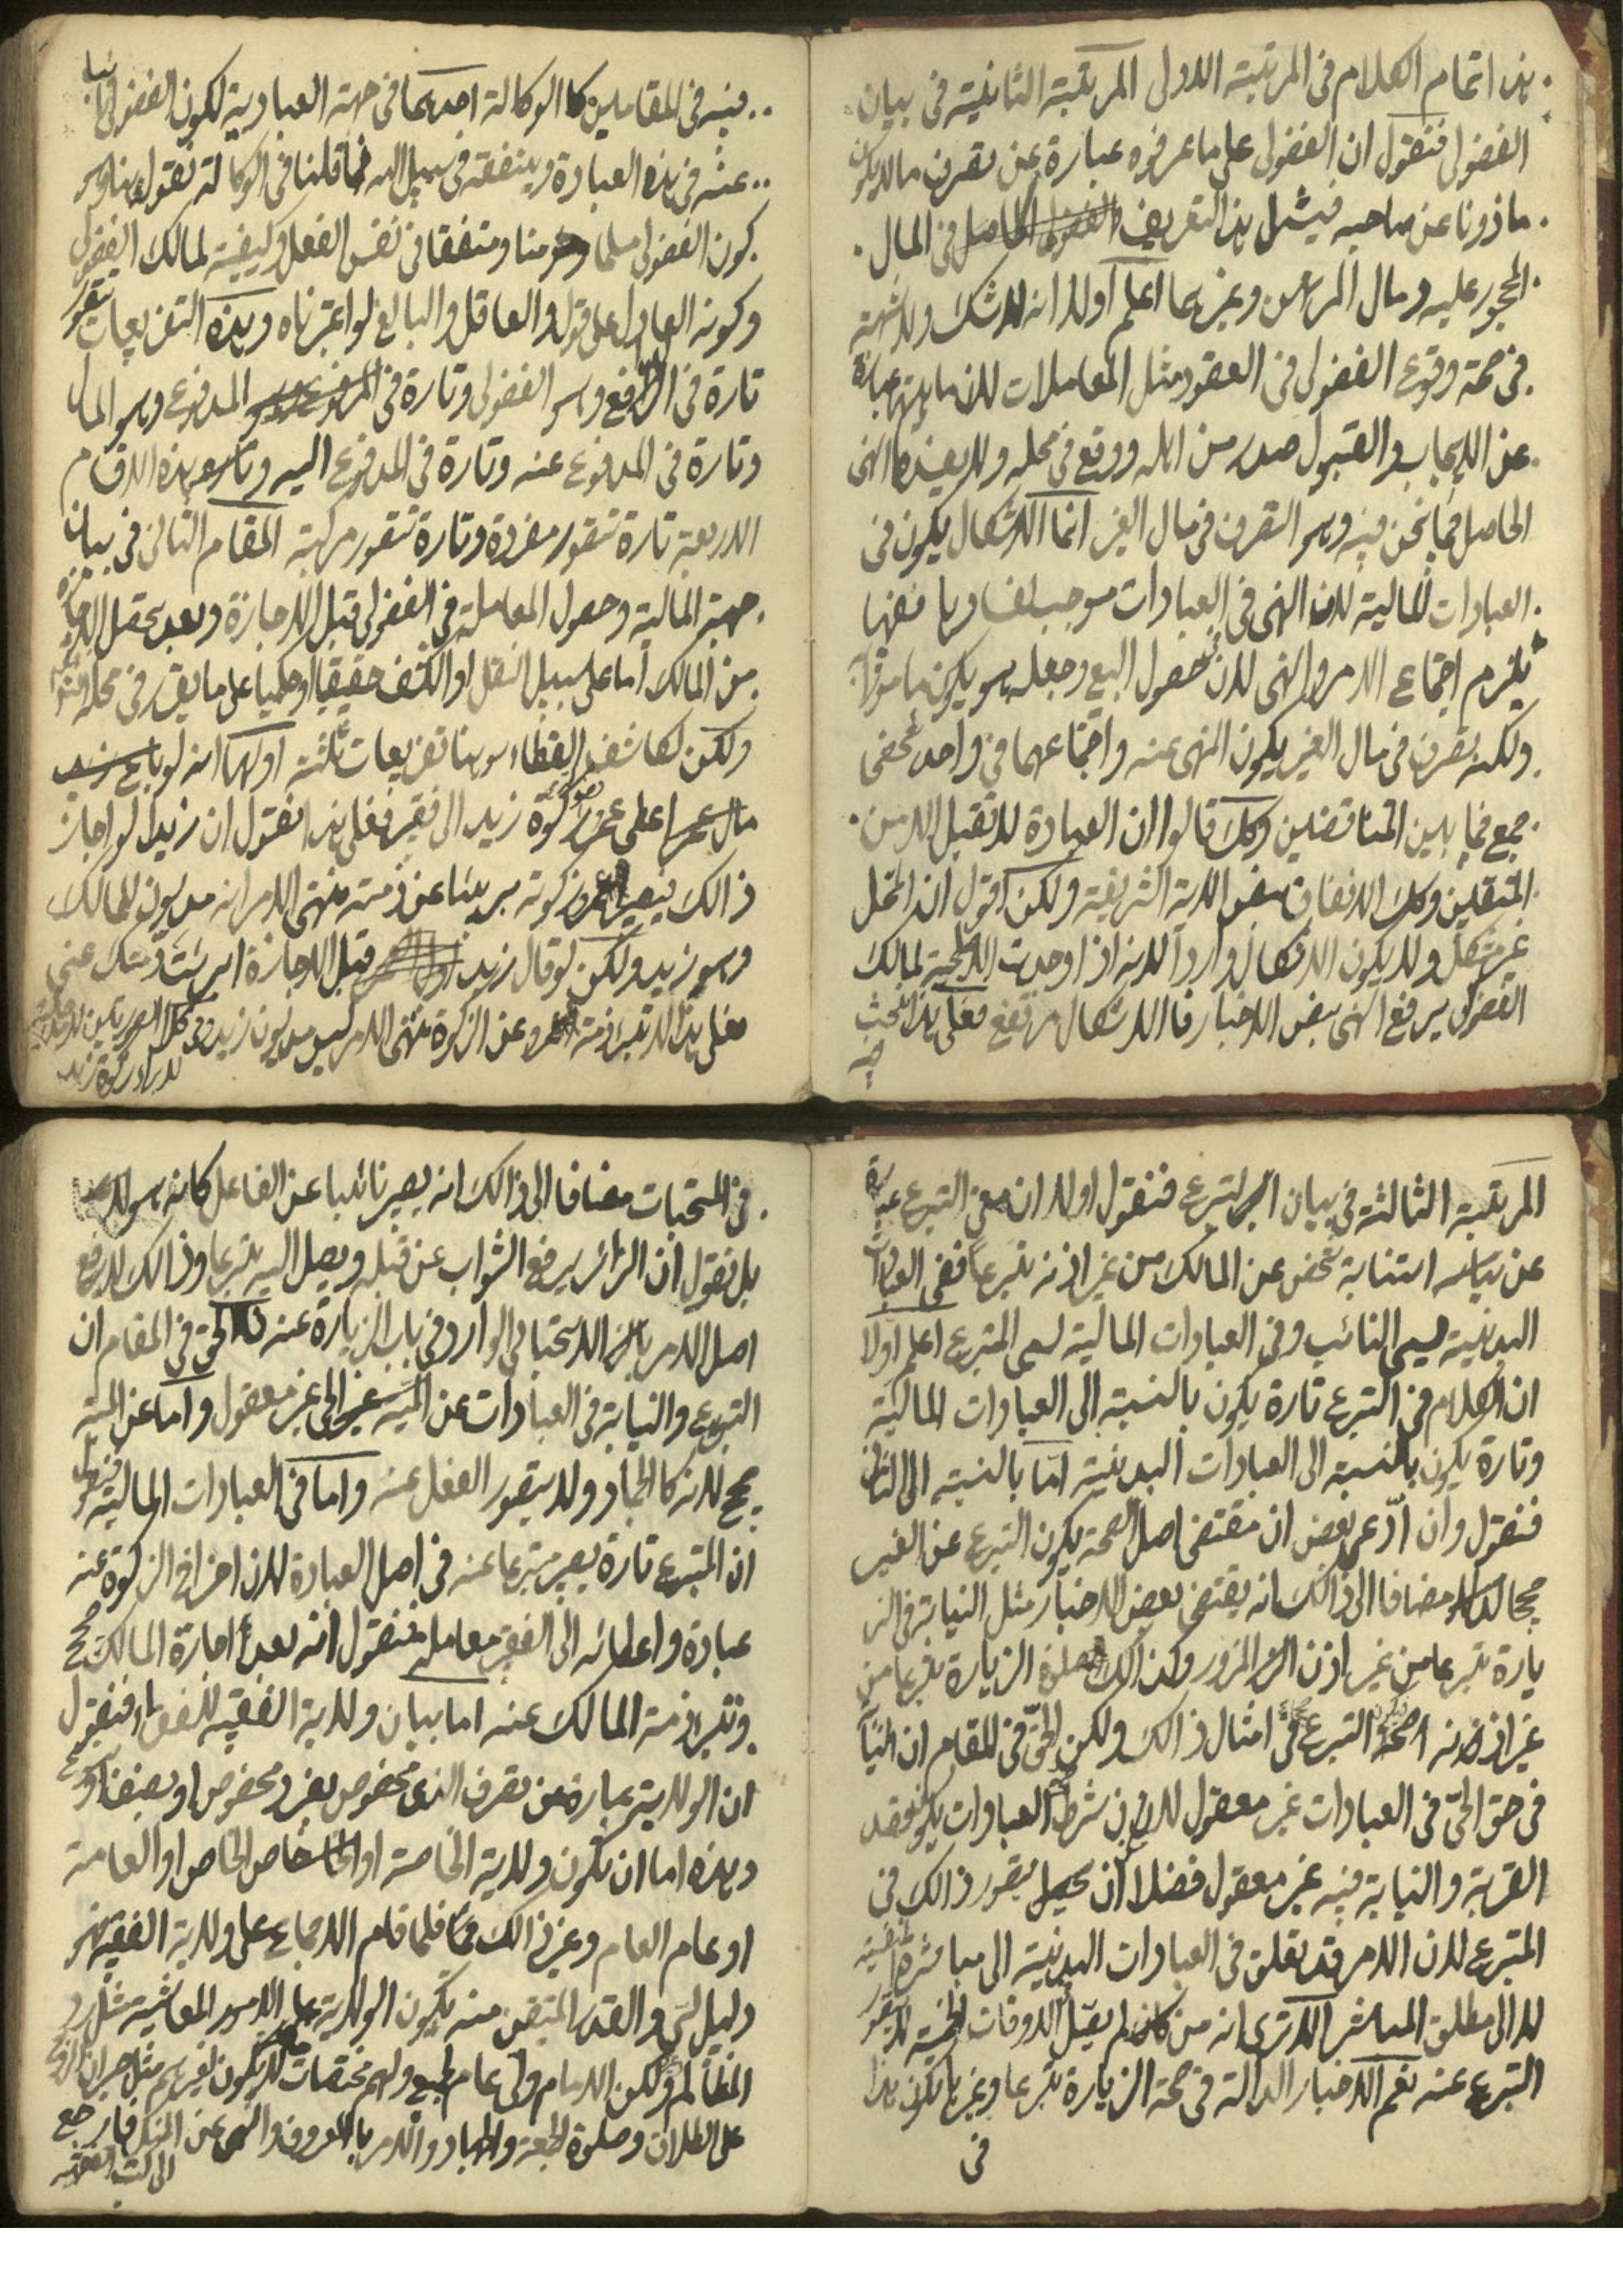 هذا تمام الكلام فى المرتبة الاولى المرتبة الثانية فى بيان
الفضولى فنقول ان الفضولى على ما عرفوه عبارة عن تصرف ما لا يكون
ماذونا عن صاحبه فيشمل هذا التعريف الفضولى الحاصل فى المال
المحجور عليه ومال المراهن وغيرهما اعلم اولا انه لا شك ولا شبهة
فى صحة وقوع الفضولى فى العقود مثل المعاملات لان ماهيتها عبارة
عن الايجاب والقبول صدر من اهله ووقع فى محله ولا يفيدها النهى
الحاصل فيما نحن فيه وهو التصرف فى مال الغير انما الاشكال يكون فى
العبادات المالية لان النهى فى العبادات موجب لفسادها فعليها
يلزم اجتماع الامر والنهى لان حصول البيع وجعله هو يكون مامورا
ولكنه تصرف فى مال الغير يكون النهى عنه واجتماعهما فى واحد شخصى
جمع فيما بين المتناقضين وكك قالوا ان العبادة لا تقبل الا من
المتقين وكك الانفاق بنص الاية الشريفة ولكن اقول ان المحل
غير مشكل ولا يكون الاشكال واردا لانه اذا وجدت للمالك
الفضولى يرفع النهى بنص الاخبار فالاشكال مرتفع فعلى هذا البحث
فيه فى المقامين كالوكالة احدهما فى جهة العبادية لكون الفضولى نائبا
عنه فى هذه العبادة وينفقه فى سبيل الله فما قلنا فى الوكالة نقول هنا وهو
كون الفضولى مسلما ومؤمنا ومتفقا فى نفس الفعل وكيفيته لمالك الفضولى
وكونه العادل على قول والعاقل والبالغ لو اعتبرناه وهذه التفريعات تتصور
تارة فى الدافع وهو الفضولى وتارة فى المدفوع وهو المال
وتارة فى المدفوع عنه وتارة فى المدفوع اليه وتارة هذه الاقسام
الاربعة تارة تتصور مفردة وتارة تتصور مركبة المقام الثانى فى بيان
جهة المالية وحصول المعاملة فى الفضولى قبل الاجازة وبعد تحصل الاجازة
من المالك اما على سبيل النقل او الكشف حقيقيا او حكميا على ما يقرر فى محله
ولكن لكاشف الغطاء هنا تفريعات ثلثة اولها انه لو
مال اعطى عمرو زكوة زيد الى فقير فعلى هذا نقول ان زيدا لو اجاز
ذالك فيصير زكوته بريئا عن ذمته منتهى الامر انه مديون للمالك
وهو زيد ولكن لو قال زيد قبل الاجازة ابرئت ذمتك عنى
فعلى هذا لا تبرا ذمة عمرو عن الزكوة منتهى الامر ليس مديون زيد
المرتبة الثالثة فى بيان التبرع فنقول اولا ان معنى التبرع عبارة
عن نيابته استنابة شخص عن المالك من غير اذنه تبرعا ففى العبادات
البدنية يسمى النائب وفى العبادات المالية يسمى المتبرع اعلم اولا
ان الكلام فى التبرع تارة يكون بالنسبة الى العبادات المالية
وتارة يكون بالنسبة الى العبادات البدنية اما بالنسبة الى الثانى
فنقول وان ادعى بعض ان مقتضى اصل الصحة يكون التبرع عن الغير
مضافا الى ذالك انه يقتضى بعض الاخبار مثل النيابة فى الز
يارة تبرعا من غير اذن المزور وكذالك صلوة الزيارة تبرعا من
غير اذنه التبرع فى امثال ذالك ولكن الحق فى المقام ان النيابة
فى حق الحى فى العبادات غير معقول لان من شرط العبادات يكون قصد
القربة والنيابة فيه غير معقول فضلا ان يتصور ذالك فى
المتبرع لان الامر قد تعلق فى العبادات البدنية الى مباشرة نفسه
لا الى مطلق المباشر الا ترى انه من كان لم يصل الاوقات الخمسة لا يتصور
التبرع عنه نعم الاخبار الدالة فى صحة الزيارة تبرعا وغيرها تكون هذا
فى
فى المستحبات مضافا الى ذالك انه يصير نائبا عن الفاعل كانه هو
بل نقول ان الزائر يرفع الثواب عن قبله ويصل اليه تبرعا وذالك لا يرفع
اصل الامر الاستحبابى الوارد فى باب الزيارة عنه فالحق فى المقام ان
التبرع والنيابة فى العبادات عن الحى غير معقول واما عن الميت
صحيح لانه كالجماد ولا يتصور الفعل عنه واما فى العبادات المالية فنقول
ان المتبرع تارة يصير متبرعا عنه فى اصل العبادة لان اخراج الزكوة عنه
عبادة واعطائه الى الفقير معاملة فنقول انه بعد اجازة المالك صحيح
وتبرا ذمة المالك عنه اما بيان ولاية الفقيه للفقراء فنقول
ان الولاية عبارة عن تصرف الذى مخصوص بفرد مخصوص او بصنف
وهذه اما ان تكون ولاية الخاصة او خاص الخاص او العامة
او عام العام وغير ذالك فلما قام الاجماع على ولاية الفقيه فهو
دليل لبى والقدر المتيقن منه يكون الولاية على الامور المعاشية مثل رد
المظالم ولكن الامام ولى عام ولهم مختصات لا يكون لغيرهم مثل جبران الزوج
على الطلاق وصلوة الجمعة والجهاد والامر بالمعروف والنهى عن المنكر فارجع
الى كتب الفقهية